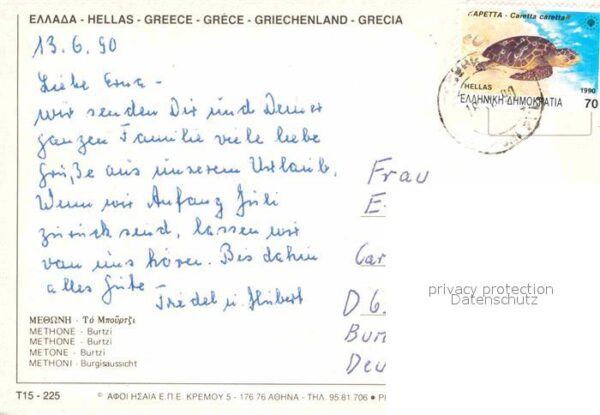 ΕΛΛΑΔΑ - HELLAS - GREECE - GRÉCE - GRIECHENLAND - GRECIA
ΚΑΡΕΤΤΑ - Caretta caretta
HELLAS
1990
ΕΛΛΗΝΙΚΗ ΔΗΜΟΚΡΑΤΙΑ
70
13.6.90
Liebe Erna -
wir senden Dir und Deiner
ganzen Familie viele liebe
Grüße aus unserem Urlaub.
Wenn wir Anfang Juli
zurück send, lassen wir
von uns hören. Bis dahin
alles Gute -
Friedel u. Hubert
Frau
E
Car
D 6
Bun
Deu
privacy protection
Datenschutz
ΜΕΘΩΝΗ - Τό Μπούρτζι
METHONE - Burtzi
METHONE - Burtzi
METONE - Burtzi
METHONI - Burgisaussicht
T15 - 225
© ΑΦΟΙ ΗΣΑΪΑ Ε.Π.Ε. ΚΡΕΜΟΥ 5 - 176 76 ΑΘΗΝΑ - ΤΗΛ. 95.81.706 ●